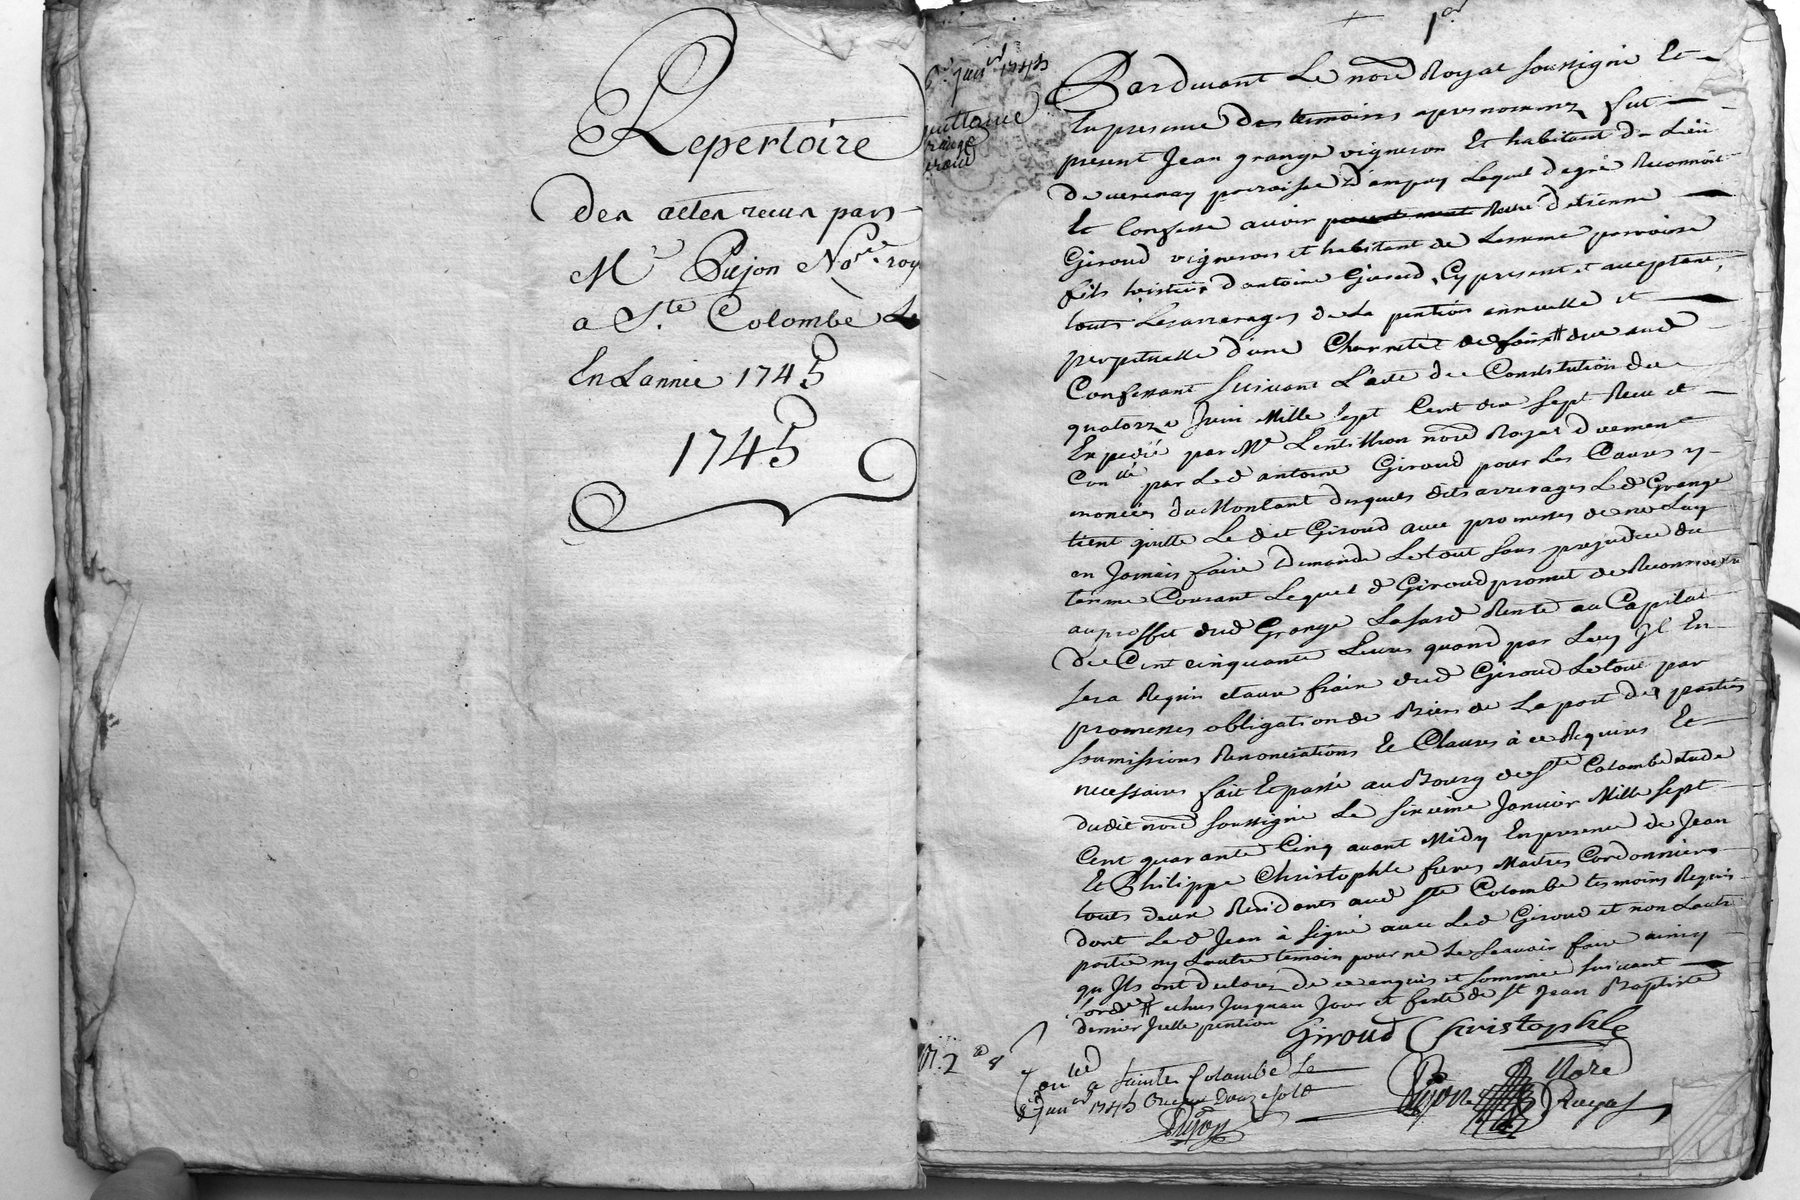 Repertoire
des actes receus par
Mr Pujon Nore roy
a Ste Colombe Le
En Lannee 1745
1745
1er
6e janer 1745
quittance
grange
giroud
Pardevant Le nore Royal soussigné Et
En presence des temoins apres nommez fut
present Jean grange vigneron Et habitant du Lieu
de verenay parroisse d'ampuy Lequel de gré Reconnoit
Et Confesse avoir Receu d'etienne
Giroud vigneron et habitant de Lameme parroisse
fils d'antoine Giroud, Cy present et acceptant,
touts Lesarrerages de La pention annuelle et
perpetuelle d'une Charretée de foin # due aud
Confessant suivant L'acte de Constitution du
quatorze Juin Mille sept Cent dix sept Receu et
Expedié par Me Lentillon nore Royal duement
Conllé par Led antoine Giroud pour Les Causes y
enoncées du Montant desquels dits arrerages Led Grange
tient quitte Le dit Giroud avec promesses de ne Luy
en Jamais faire demande Letout sans prejudice du
terme Courant Lequel d Giroud promet de Reconnoitre
au proffit dud Grange Lasusd Rente au Capital
de Cent cinquante Livres quand par Luy Jl En
sera Requis etaux frais dud Giroud Letout par
promesses obligation de Biens de La part des parties
soumissions Renonciations Et Clauses à ce Requises Et
necessaires fait Et passé au Bourg de Ste Colombe etude
dudit nore soussigné Le sixieme Janvier Mille sept
Cent quarante Cinq avant Midy En presence de Jean
Et Philippe Christophle freres Maitres Cordonniers
touts deux Residents aud Ste Colombe temoins Requis
dont Led Jean à signé avec Led Giroud et non Lautre
partie ny Lautre temoin pour ne Le scavoir faire ainsy
qu'Jls ont declarez de ce enquis et sommée suivant
L'orde # echus Jusquau Jour et feste de St Jean Baptiste
dernier Jcelle pention
Giroud Christophle
Conllé a Sainte Colombe Le
8e janer 1745 Receu Douze sols
Pujon
Pujon Nore
Royal